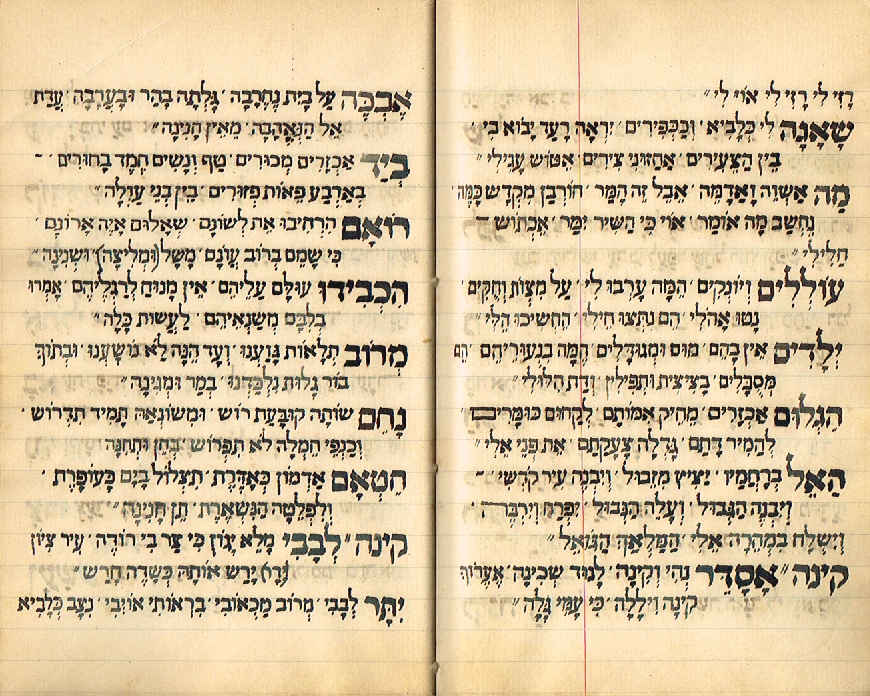 רָזִי לִי רָזִי לִי אוֹי לִי״
שָׁאֲגָה לִי כְּלָבִיא׳ וְכַכְּפִירִים׳ יִרְאָה רָעַד יָבוֹא בִי׳
בֵּין הַצְּעִירִים׳ אֲחָזוּנִי צִירִים׳
מָה אַשְׁוֶה וַאֲדַמֶּה׳ אֵבֶל זֶה הַמַּר׳ חוּרְבַּן מִקְדָּשׁ כַּמֶּה׳
נֶחְשָׁב מָה אוֹמַר׳ אוֹי כִּי הַשִּׁיר יֻמַּר׳
חֲלִילִי״
עוֹלְלִים וְיוֹנְקִים׳ הֵמָּה עָרְבוּ לִי׳ עַל מִצְוֹת וְחֻקִּים׳
נָטוּ אָהֳלִי׳ הֵם נִתְּצוּ חֵילִי׳ הֶחְשִׁיכוּ הִלִּי״
יְלָדִים אֵין בָּהֶם׳ מוּם וּמְגוּדָּלִים׳ הֵמָּה בִּנְעוּרֵיהֶם׳ הֵם
מְסֻבָּלִים׳ בְּצִיצִית וּתְפִילִּין׳ וְדַת הִלּוּלִי״
הִגְלוּם אַכְזָרִים׳ מֵחֵיק אִמּוֹתָם׳ לְקָחוּם כּוּמָרִים
לְהָמִיר דָּתָם׳ גָּדְלָה צַעֲקָתָם׳ אֶת פְּנֵי אֵלִי״
הָאֵל בְּרַחֲמָיו׳ יָצִיץ מִזְּבוּל׳ וְיִבְנֶה עִיר קָדְשִׁי׳
וְיִבְנֶה הַגְּבוּל׳ וְעָלָה הַגְּבוּל׳ יִפְרַח וְיִרְבֶּה׳
וְיִשְׁלַח בִּמְהֵרָה אֵלִי׳ הַמַּלְאָךְ הַגּוֹאֵל״
קינה״ אֲסַדֵּר נְהִי וְקִינָה׳ לְנוּד שְׁכִינָה׳ אֶעֱרוֹךְ
קִינָה וִילָלָה׳ כִּי עַמִּי גָּלָה״
אֶבְכֶּה עַל בַּיִת נֶחֱרָבָה׳ גָּלְתָה בָּהָר וּבָעֲרָבָה׳ עֲדַת
אֵל הַנֶּאֱהָבָה׳ מֵאֵין חֲנִינָה״
בְּיַד אַכְזָרִים מְכוּרִים׳ טַף וְנָשִׁים חֶמֶד בַּחוּרִים׳
בְּאַרְבַּע פֵּאוֹת פְּזוּרִים׳ בֵּין בְּנֵי עַוְלָה״
רוֹאָם הִרְחִיבוּ אֶת לְשׁוֹנָם׳ שְׁאָלוּם אַיֵּה אֲדוֹנָם׳
כִּי שָׁמֵם בְּרוֹב עֲוֹנָם׳ מָשָׁל (וּמְלִיצָה) וּשְׁנִינָה״
הִכְבִּידוּ עוּלָּם עֲלֵיהֶם׳ אֵין מָנוֹחַ לְרַגְלֵיהֶם׳ אָמְרוּ
בְּלִבָּם מְשַׂנְאֵיהֶם׳ לַעֲשׂוֹת כָּלָה״
מֵרוֹב תְּלָאוֹת גָּוַעְנוּ׳ וְעַד הֵנָּה לֹא נוֹשַׁעְנוּ׳ וּבְתוֹךְ
בּוֹר גָּלוּת נִלְכַּדְנוּ׳ בְּמַר וּמְגִינָה״
נַחֵם שׁוֹתָה קוּבַּעַת רוֹשׁ׳ וּמְשׂוֹנְאֶהָ תָּמִיד תִּדְרוֹשׁ׳
וְכַנְפֵי חֶמְלָה לֹא תִפְרוֹשׂ׳ בְּחֵן וּתְחִנָּה״
הַטְאָם אַדְמוֹן כְּאַדֶּרֶת׳ תִּצְלוֹל בַּיָּם כָּעוֹפֶרֶת׳
וְלִפְלֵטָה הַנִּשְׁאֶרֶת׳ תֵּן חֲנִינָה״
קינה״ לְבָבִי מָלֵא יָגוֹן׳ כִּי צָר בִּי רוֹדֶה׳ עִיר צִיּוֹן
(יָרַ) יָרַשׁ אוֹתָהּ כְּשָׂדֶה חָרַשׁ״
יִתַּר לְבָבִי׳ מֵרוֹב מַכְאוֹבִי׳ בִּרְאוֹתִי אוֹיְבִי׳ נִצָּב כְּלָבִיא